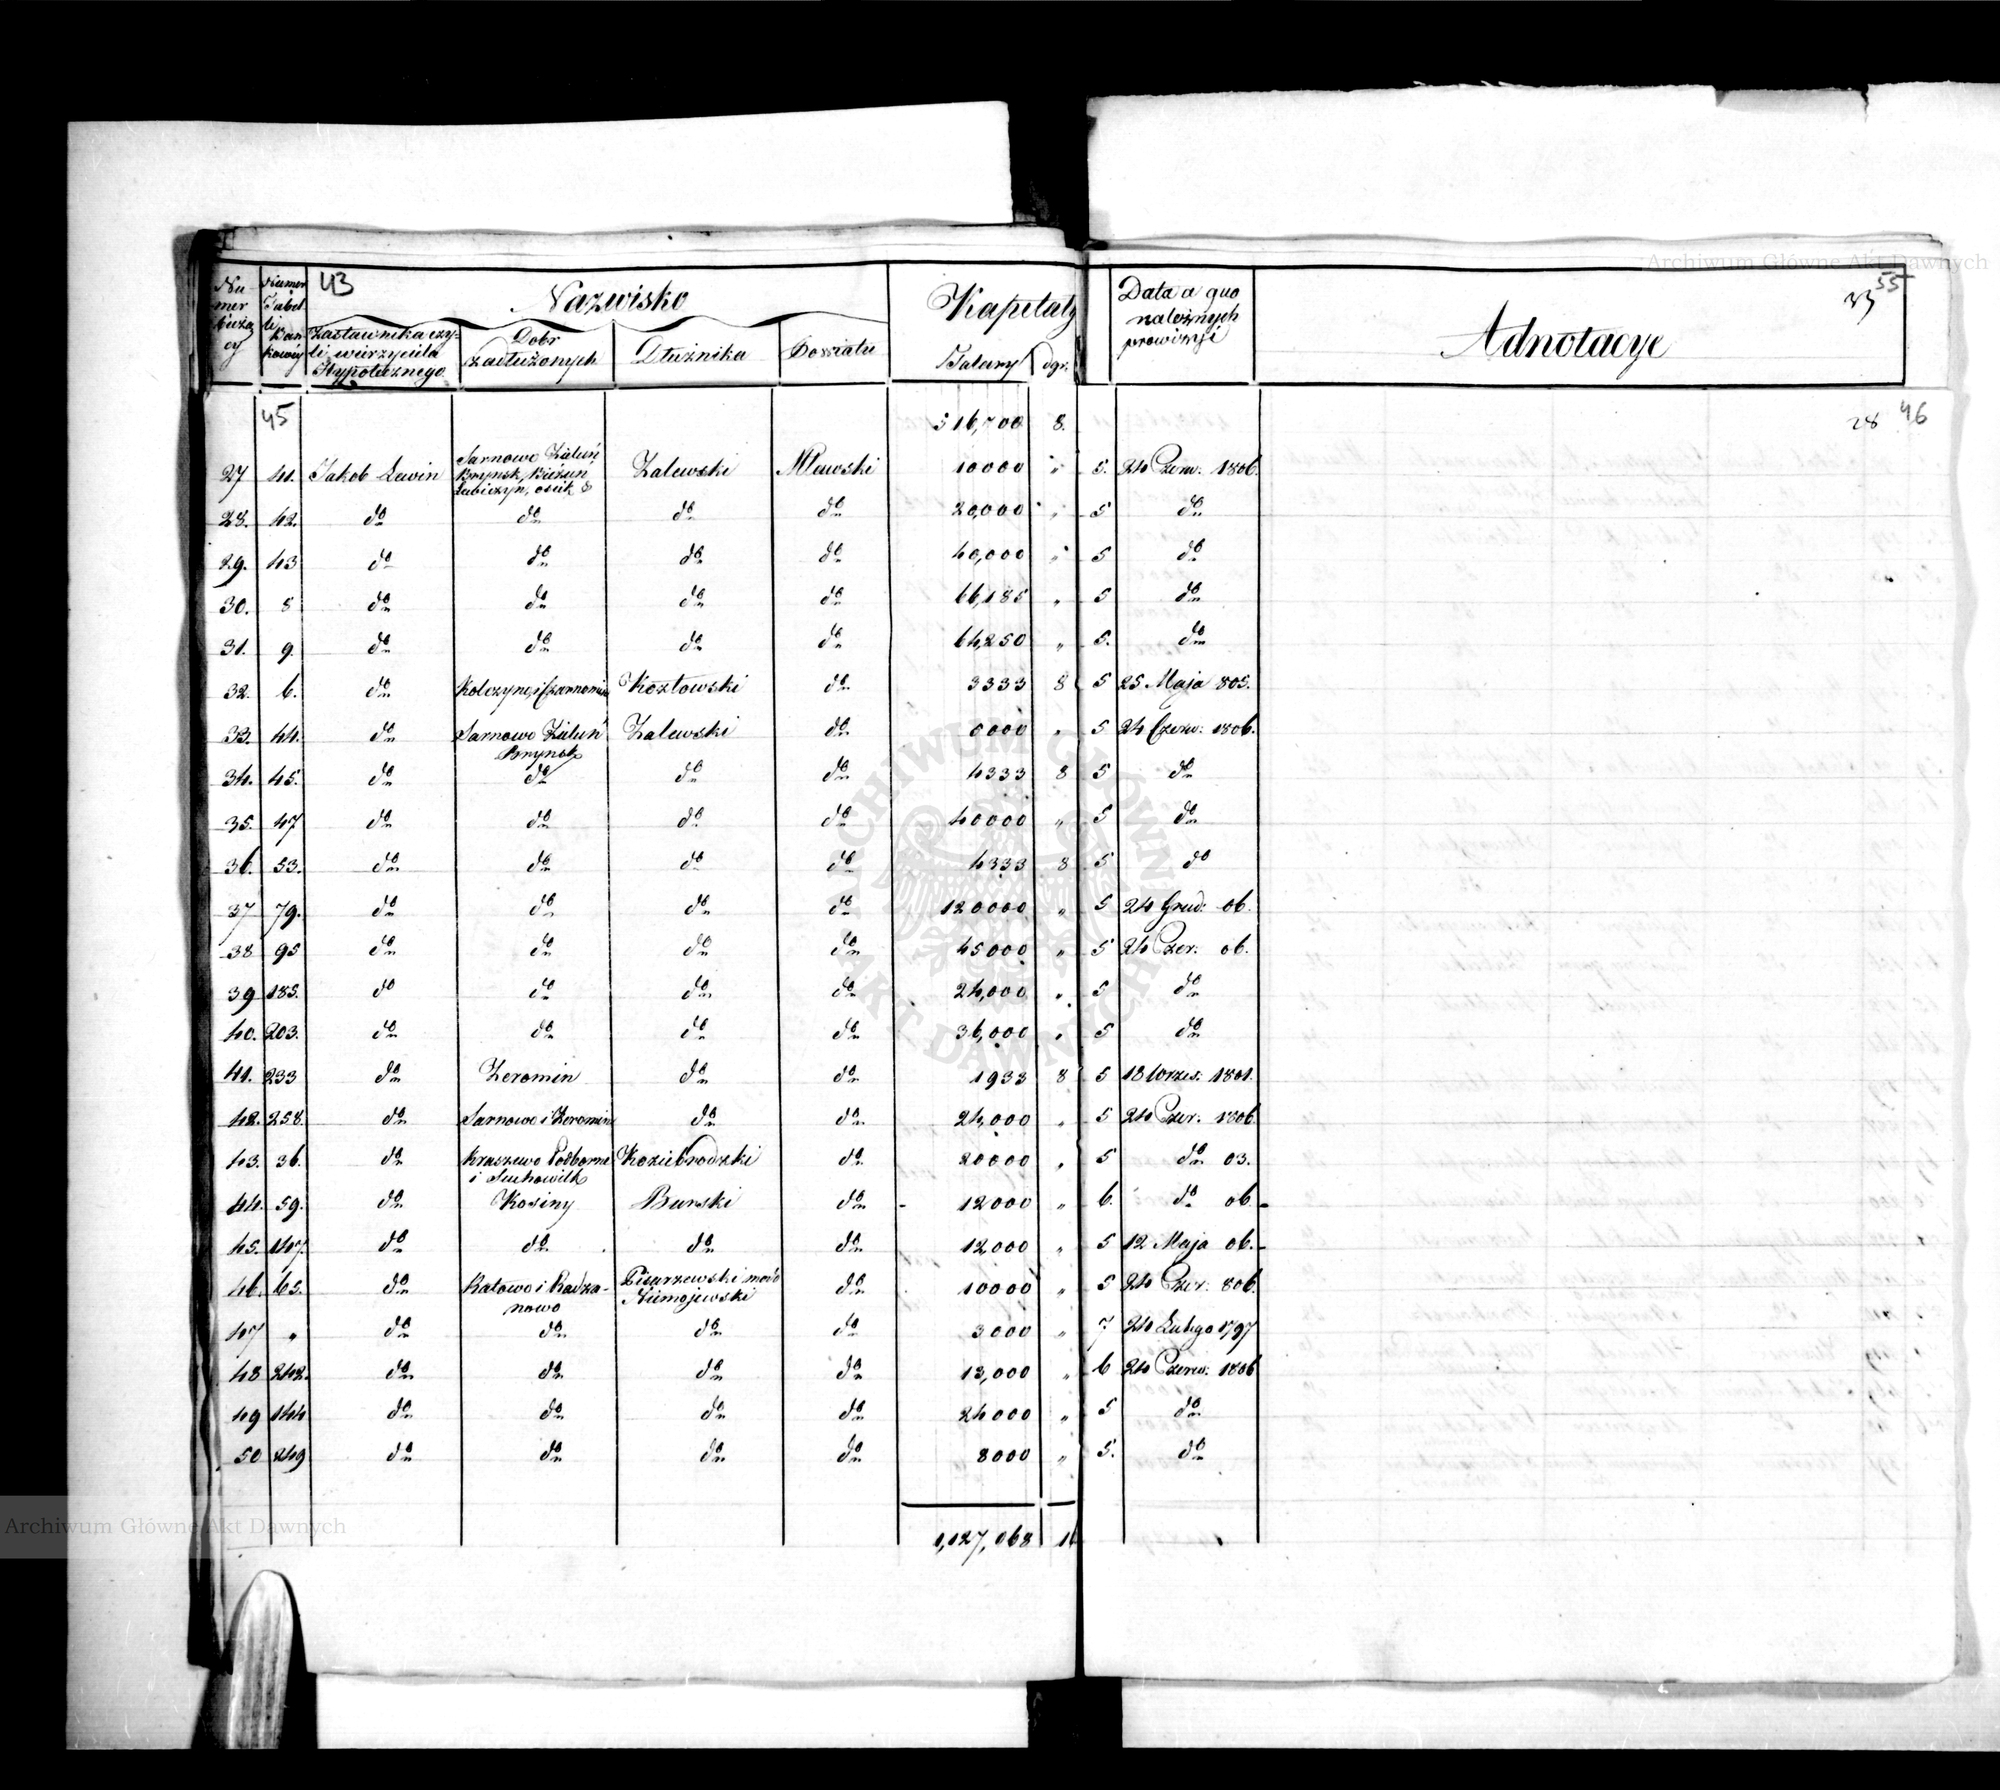 Archiwum Główne Akt Dawnych
55
43
33
Numer bieżący
Numer Tabelli Bankowéj
Nazwisko
Kapitały
Data a quo należnych prowizyi
Adnotacye
Zastawnika czyli wierzyciela Hypotecznego
Dobr zadłużonych
Dłużnika
Powiatu
Talary
dgr.
45
516,700 8.
28 46
Sarnowo Zieluń
27 41. Jakob Lewin Brynsk, Bieżuń Zalewski Mławski 10000 " 5. 24 Czerw: 1806.
Lubiczyn, osiek &
28. 42. do do do do 20,000 " 5 do
29. 43 do do do do 40,000 " 5 do
30. 8 do do do do 66,185 " 5 do
31. 9. do do do do 64,250 " 5. do
32. 6. do Kolczyn i Czarnomin Kozłowski do 3333 8 5 25 Maja 805.
33. 44. do Sarnowo Zieluń Zalewski do 5000 " 5 24 Czerw: 1806.
Brynsk
34. 45. do do do do 4333 8 5 do
35. 47 do do do do 40000 " 5 do
36. 53. do do do do 4333 8 5 do
37 79. do do do do 120000 " 5 24 Grud: 06.
38 95 do do do do 45000 " 5 24 Czer: 06.
39 185. do do do do 24,000 " 5 do
40. 203. do do do do 36,000 " 5 do
41. 233 do Zeromin do do 1933 8 5 18 Wrzes: 1801.
42. 258. do Sarnowo i Zeromin do do 24,000 " 5 24 Czer: 1806.
43. 36. do Kraszewo Podborne Koziebrodzki do 20000 " 5 do 03.
i Suchowilk
44. 59. do Kosiny Burski do - 12000 " 6. do 06. -
45. 147. do do do do 12,000 " 5 12 Maja 06. -
46. 65. do Ratowo i Radza- Pisarzewski modo do 10000 " 5 24 Czer: 806.
nowo Niemojewski
47 " do do do do 3000 " 7 24 Lutego 1797
48 242. do do do do 13,000 " 6 24 Czerw: 1806
49 144 do do do do 24000 " 5 do
50 249 do do do do 8000 " 5. do
1,127,068 16
ARCHIWUM GŁÓWNE AKT DAWNYCH
Archiwum Główne Akt Dawnych